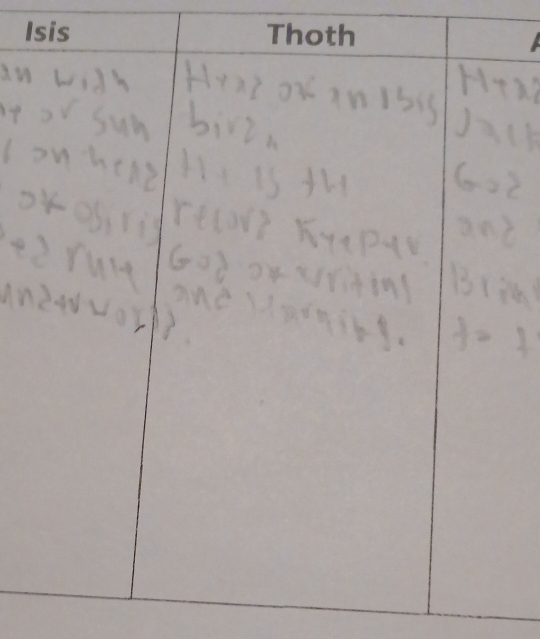 Isis
an with
or sun
on head
of Osiris
rule
underworld.
Thoth
Head of an Ibis
bird,
He is the
record Keeper
God of writing
and learning.
Head
Jack
God
and
Brin
to t